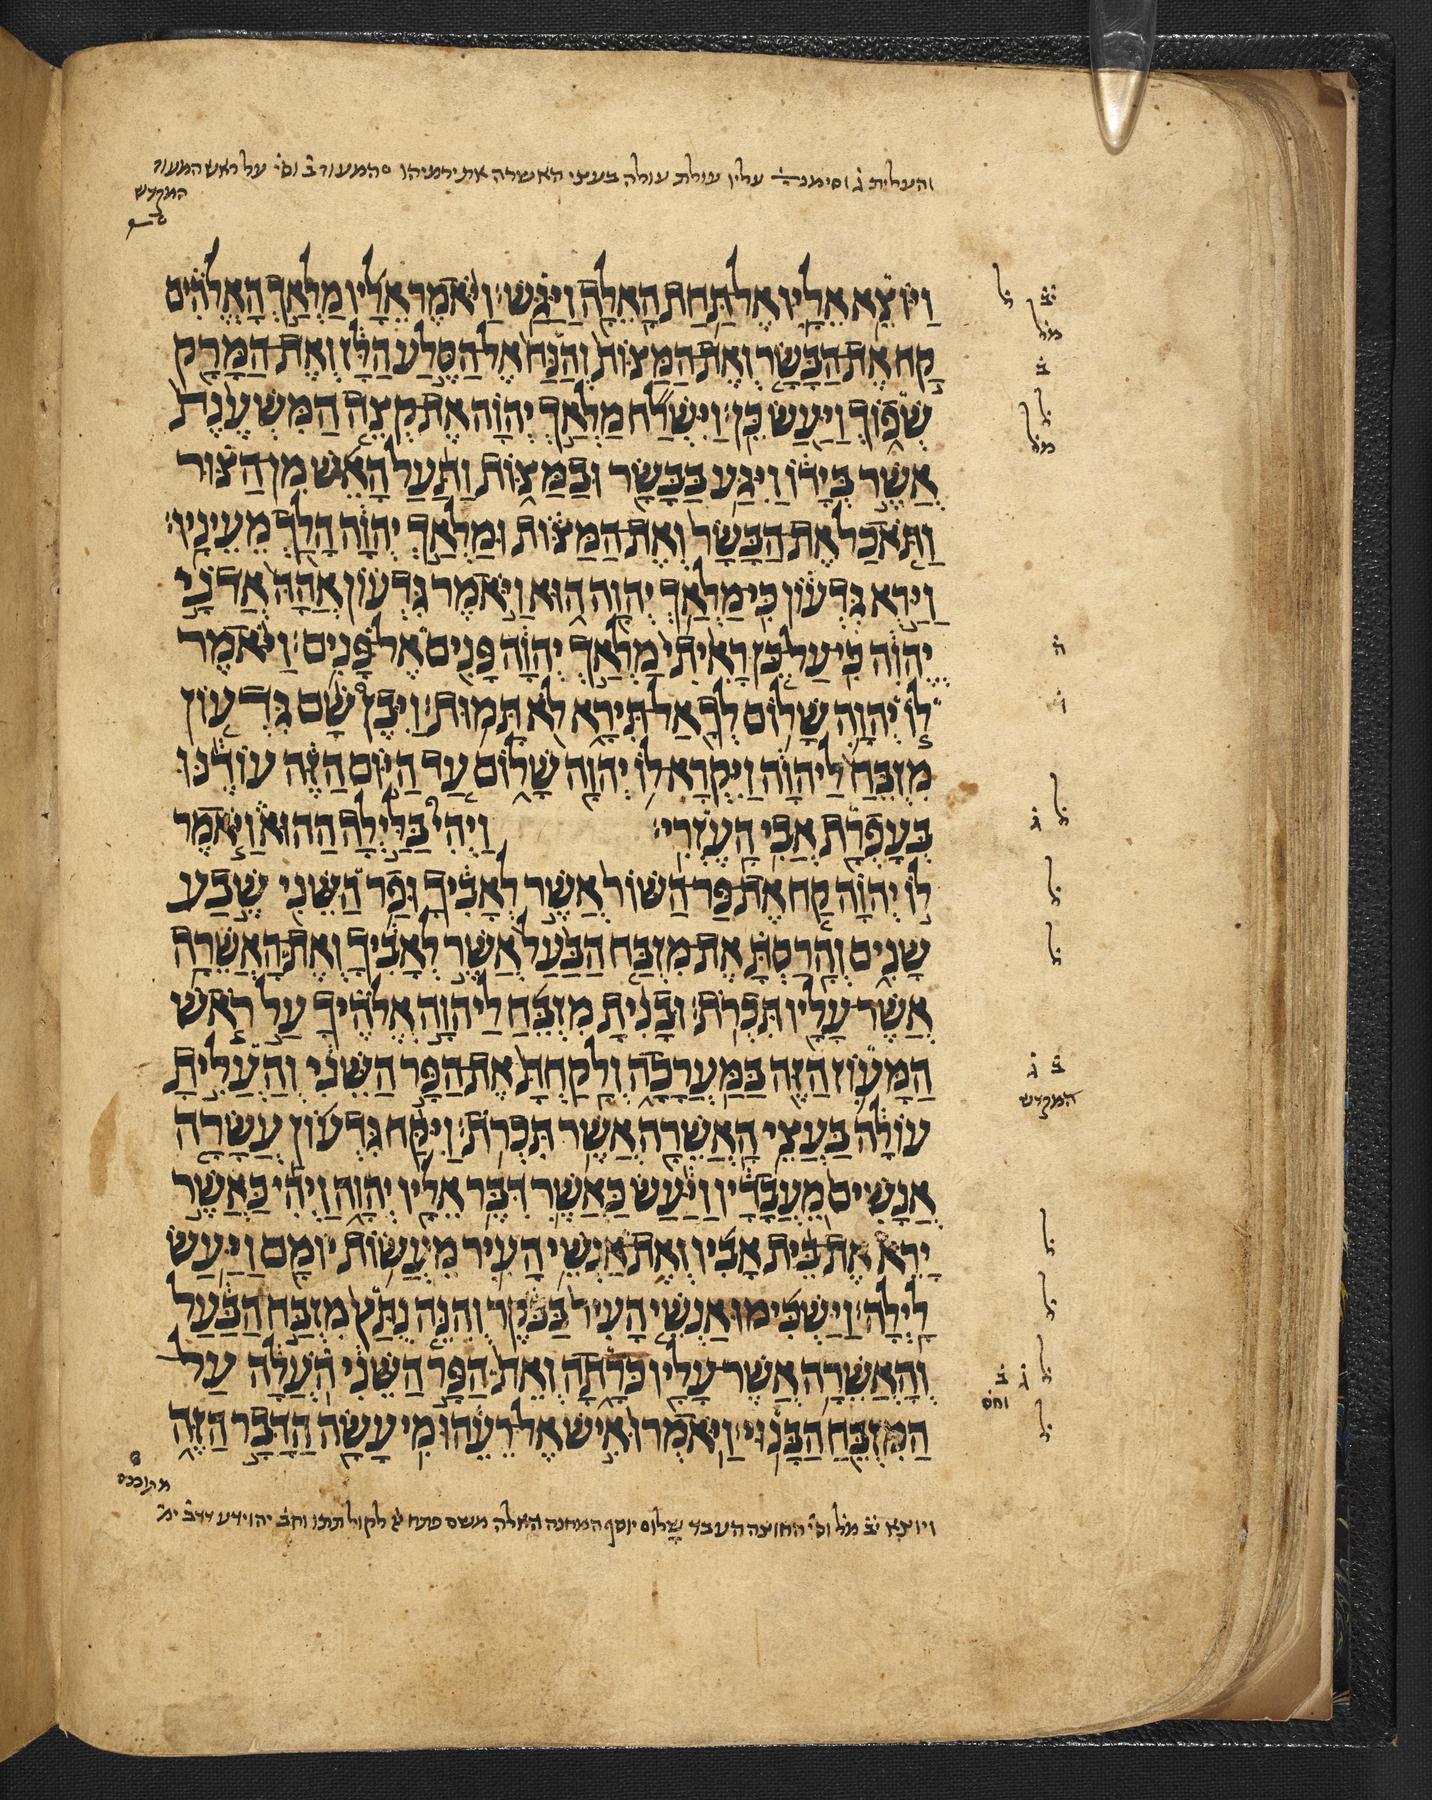 והעלית ג̇ וסימנה עליו עולת עולה בעצי האשרה את ירמיהו המעוז ב̇ וס̇ על ראש המעוז
המקדש
וַיּוֹצֵא אֵלָיו אֶל תַּחַת הָאֵלָה וַיַּגַּשׁ׃ וַיֹּאמֶר אֵלָיו מַלְאַךְ הָאֱלֹהִים
קַח אֶת הַבָּשָׂר וְאֶת הַמַּצּוֹת וְהַנַּח אֶל הַסֶּלַע הַלָּז וְאֶת הַמָּרָק
שְׁפוֹךְ וַיַּעַשׂ כֵּן׃ וַיִּשְׁלַח מַלְאַךְ יְהוָה אֶת קְצֵה הַמִּשְׁעֶנֶת
אֲשֶׁר בְּיָדוֹ וַיִּגַּע בַּבָּשָׂר וּבַמַּצּוֹת וַתַּעַל הָאֵשׁ מִן הַצּוּר
וַתֹּאכַל אֶת הַבָּשָׂר וְאֶת הַמַּצּוֹת וּמַלְאַךְ יְהוָה הָלַךְ מֵעֵינָיו׃
וַיַּרְא גִּדְעוֹן כִּי מַלְאַךְ יְהוָה הוּא וַיֹּאמֶר גִּדְעוֹן אֲהָהּ אֲדֹנָי
יְהוִה כִּי עַל כֵּן רָאִיתִי מַלְאַךְ יְהוָה פָּנִים אֶל פָּנִים׃ וַיֹּאמֶר
לוֹ יְהוָה שָׁלוֹם לְךָ אַל תִּירָא לֹא תָּמוּת׃ וַיִּבֶן שָׁם גִּדְעוֹן
מִזְבֵּחַ לַיהוָה וַיִּקְרָא לוֹ יְהוָה שָׁלוֹם עַד הַיּוֹם הַזֶּה עוֹדֶנּוּ
בְּעָפְרָת אֲבִי הָעֶזְרִי׃ וַיְהִי בַּלַּיְלָה הַהוּא וַיֹּאמֶר
לוֹ יְהוָה קַח אֶת פַּר הַשּׁוֹר אֲשֶׁר לְאָבִיךָ וּפַר הַשֵּׁנִי שֶׁבַע
שָׁנִים וְהָרַסְתָּ אֶת מִזְבַּח הַבַּעַל אֲשֶׁר לְאָבִיךָ וְאֶת הָאֲשֵׁרָה
אֲשֶׁר עָלָיו תִּכְרֹת׃ וּבָנִיתָ מִזְבֵּחַ לַיהוָה אֱלֹהֶיךָ עַל רֹאשׁ
הַמָּעוֹז הַזֶּה בַּמַּעֲרָכָה וְלָקַחְתָּ אֶת הַפָּר הַשֵּׁנִי וְהַעֲלִיתָ
עוֹלָה בַּעֲצֵי הָאֲשֵׁרָה אֲשֶׁר תִּכְרֹת׃ וַיִּקַּח גִּדְעוֹן עֲשָׂרָה
אֲנָשִׁים מֵעֲבָדָיו וַיַּעַשׂ כַּאֲשֶׁר דִּבֶּר אֵלָיו יְהוָה וַיְהִי כַּאֲשֶׁר
יָרֵא אֶת בֵּית אָבִיו וְאֶת אַנְשֵׁי הָעִיר מֵעֲשׂוֹת יוֹמָם וַיַּעַשׂ
לָיְלָה׃ וַיַּשְׁכִּימוּ אַנְשֵׁי הָעִיר בַּבֹּקֶר וְהִנֵּה נֻתַּץ מִזְבַּח הַבַּעַל
וְהָאֲשֵׁרָה אֲשֶׁר עָלָיו כֹּרָתָה וְאֵת הַפָּר הַשֵּׁנִי הֹעֲלָה עַל
הַמִּזְבֵּחַ הַבָּנוּי׃ וַיֹּאמְרוּ אִישׁ אֶל רֵעֵהוּ מִי עָשָׂה הַדָּבָר הַזֶּה
י̇ב̇
ל̇
מל̇
ב̇
ל̇
מל̇
ה̇
ו̇
ל̇ ג̇
ל̇
ל̇
ב̇ ג̇
המקדש
ל̇
ל̇
ל̇ ג̇ ב̇
וחס̇
ל̇
ויוצא י̇ב̇ מל̇ וס̇ החוצה העבד שלום יוסף המחנה האלה